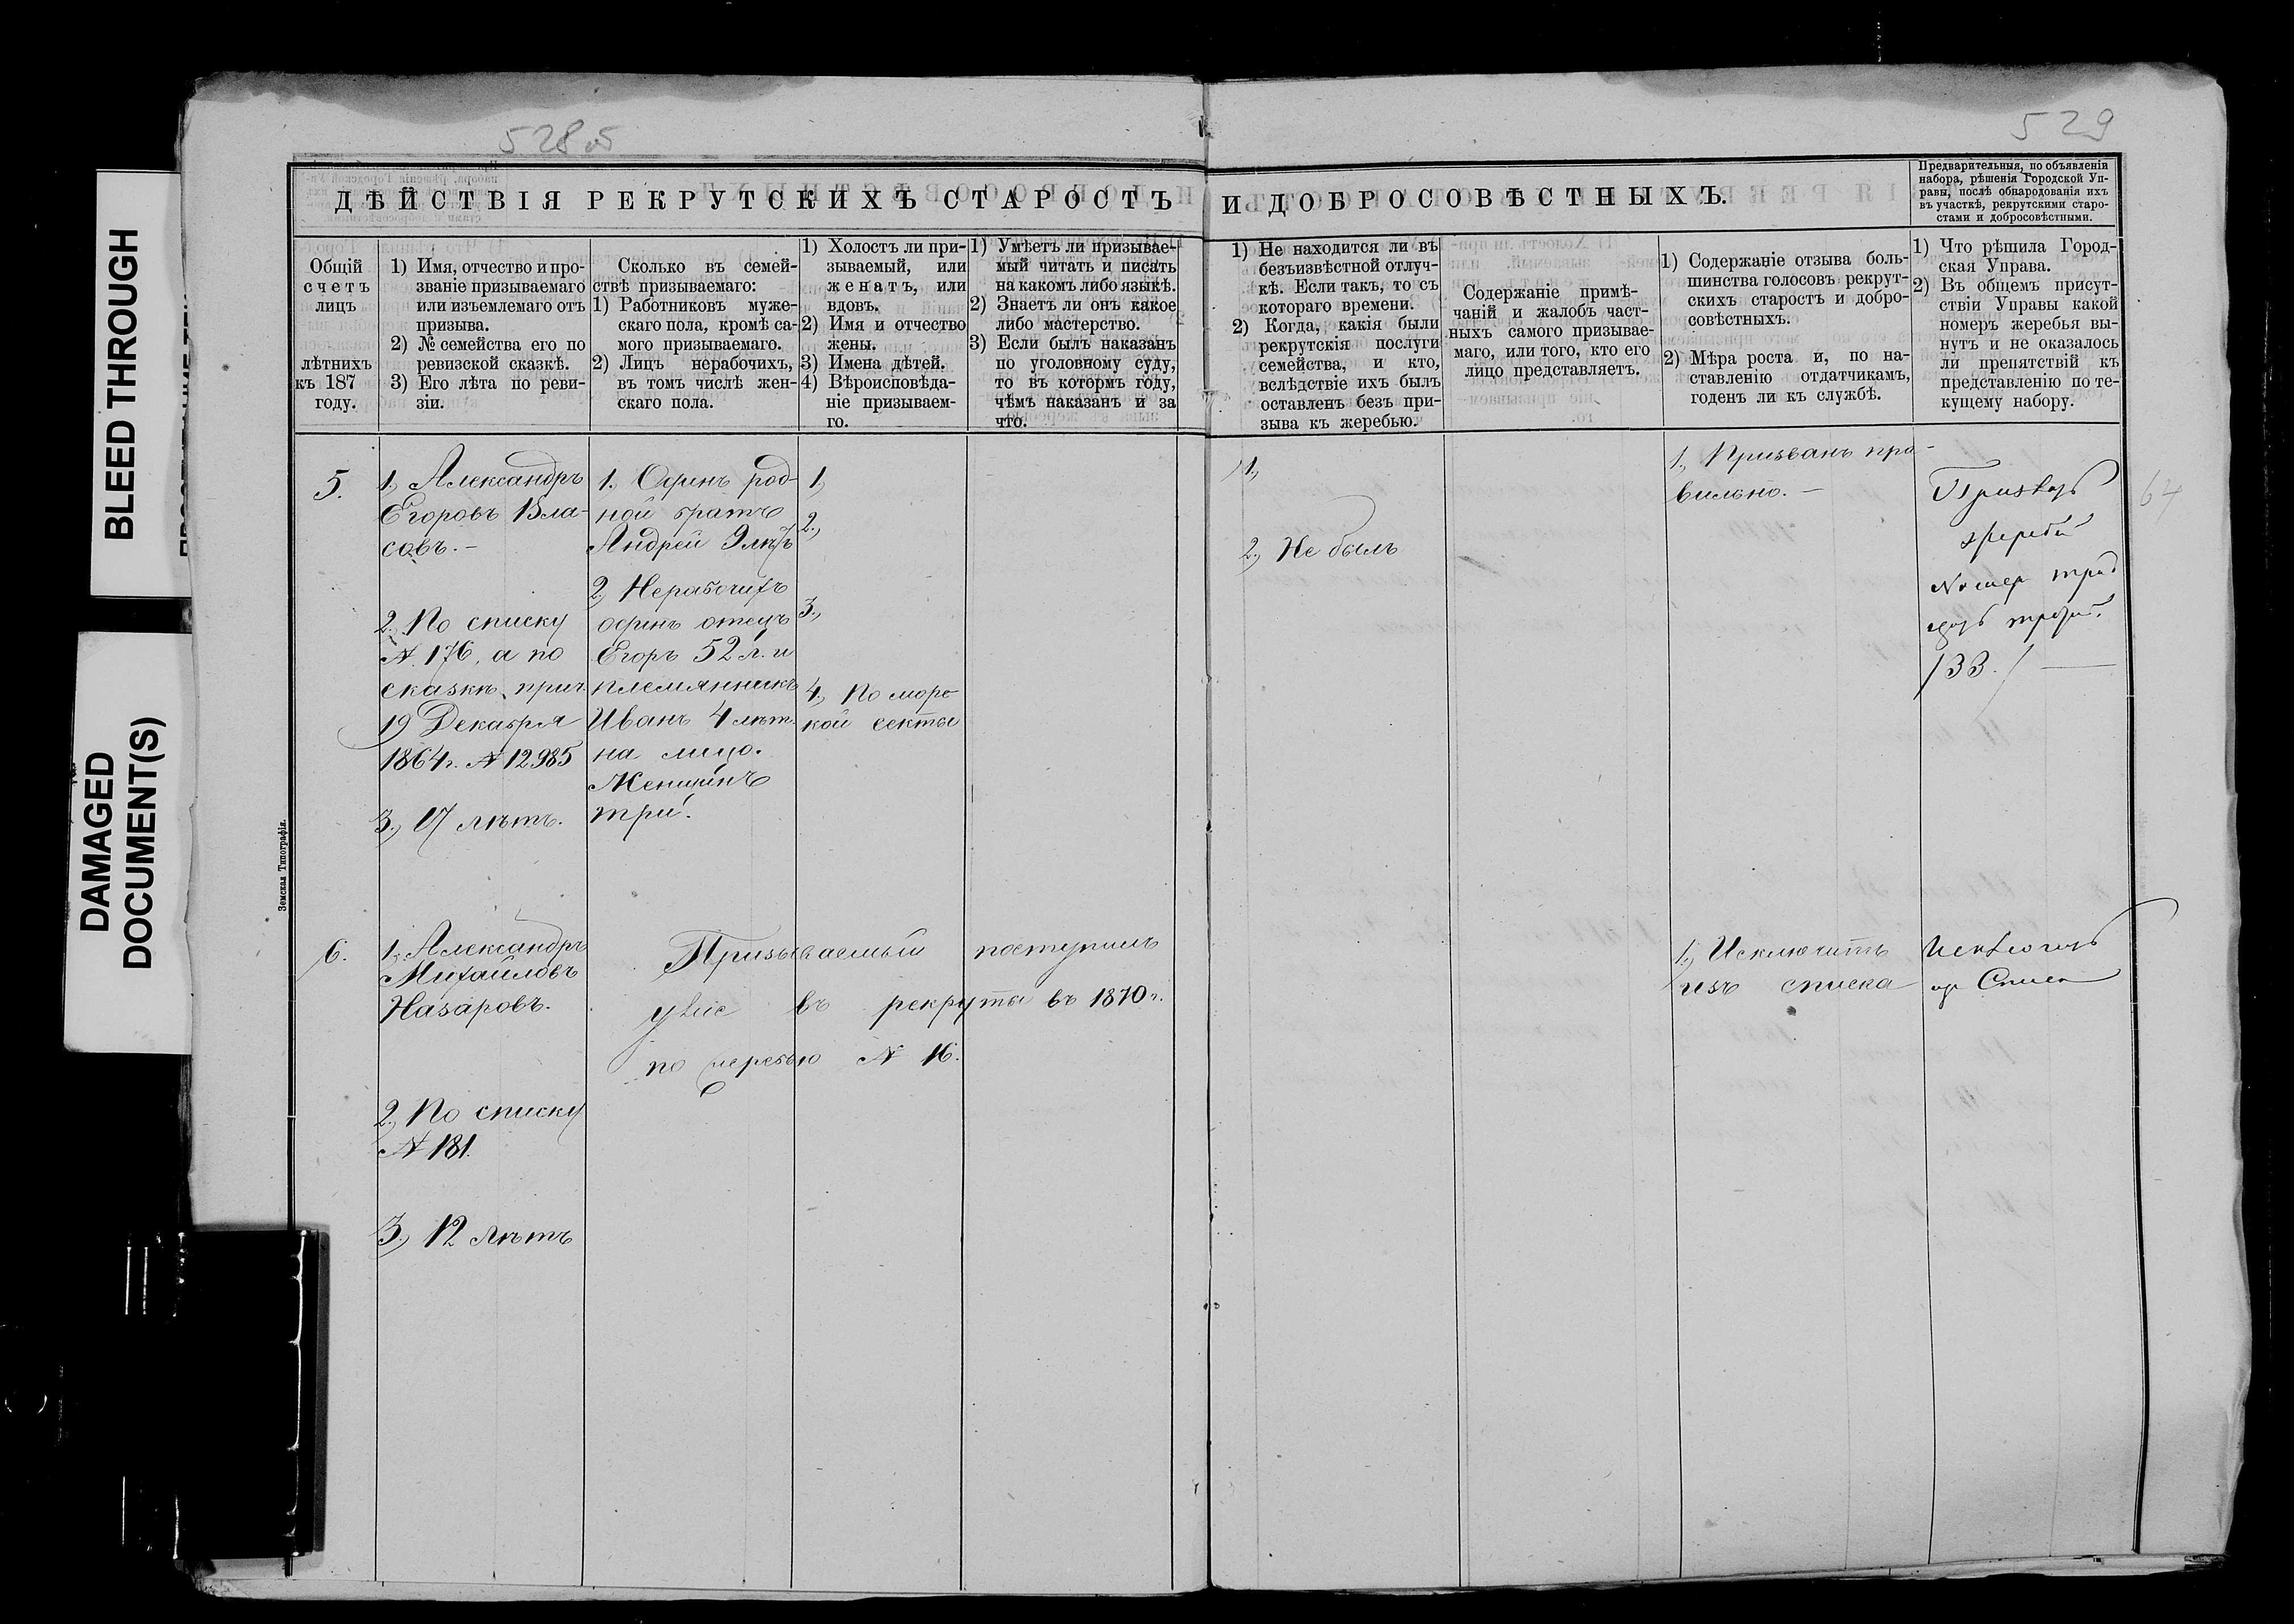 BLEED THROUGH
DAMAGED
DOCUMENT(S)
528 об
529
ДѢЙСТВІЯ РЕКРУТСКИХЪ СТАРОСТЪ
И ДОБРОСОВѢСТНЫХЪ.
Предварительныя, по объявленіи
набора, рѣшенія Городской Уп-
равы, послѣ обнародованія ихъ
въ участкѣ, рекрутскими старо-
стами и добросовѣстными.
Общій
счетъ
лицъ
лѣтнихъ
къ 187
году.
1) Имя, отчество и про-
званіе призываемаго
или изъемлемаго отъ
призыва.
2) № семейства его по
ревизской сказкѣ.
3) Его лѣта по реви-
зіи.
Сколько въ семей-
ствѣ призываемаго:
1) Работниковъ муже-
скаго пола, кромѣ са-
мого призываемаго.
2) Лицъ нерабочихъ,
въ томъ числѣ жен-
скаго пола.
1) Холостъ ли при-
зываемый, или
женатъ, или
вдовъ.
2) Имя и отчество
жены.
3) Имена дѣтей.
4) Вѣроисповѣда-
ніе призываем-
го.
1) Умѣетъ ли призывае-
мый читать и писать
на какомъ либо языкѣ.
2) Знаетъ ли онъ какое
либо мастерство.
3) Если былъ наказанъ
по уголовному суду,
то въ котормъ году,
чѣмъ наказанъ и за
что.
1) Не находится ли въ
безъизвѣстной отлуч-
кѣ. Если такъ, то съ
котораго времени.
2) Когда, какія были
рекрутскія послуги
семейства, и кто,
вслѣдствіе ихъ былъ
оставленъ безъ при-
зыва къ жеребью.
Содержаніе примѣ-
чаній и жалобъ част-
ныхъ самого призывае-
маго, или того, кто его
лицо представляетъ.
1) Содержаніе отзыва боль-
шинства голосовъ рекрут-
скихъ старостъ и добро-
совѣстныхъ.
2) Мѣра роста и, по на-
ставленію отдатчикамъ,
годенъ ли къ службѣ.
1) Что рѣшила Город-
ская Управа.
2) Въ общемъ присут-
ствіи Управы какой
номеръ жеребья вы-
нутъ и не оказалось
ли препятствій къ
представленію по те-
кущему набору.
5.
1., Александръ
Егоровъ Вла-
совъ. —
2., По списку
№. 176, а по
сказкѣ прич.
19 Декабря
1864 г. № 12985
3., 17 лѣтъ.
1. Одинъ род-
ной братъ
Андрей 9 лѣтъ
2., Нерабочихъ
одинъ отецъ
Егоръ 52 л. и
племянникъ
Иванъ 4 лѣт.
на лицо.
Женщинъ
три.
1,
2.,
3.,
4., Поморс-
кой секты
1.,
2., Не былъ
1., Призванъ пра-
вильно. —
жребій
Номер трид
133./ —
64
6.
1., Александръ
Михайловъ
Назаровъ.
2., По списку
№ 181.
3., 12 лѣтъ
Призываемый поступилъ
уже въ рекруты въ 1870 г.
по жеребью № 16.
1., Исключить
изъ списка
Исключить
из Списка
Земская Типографія.